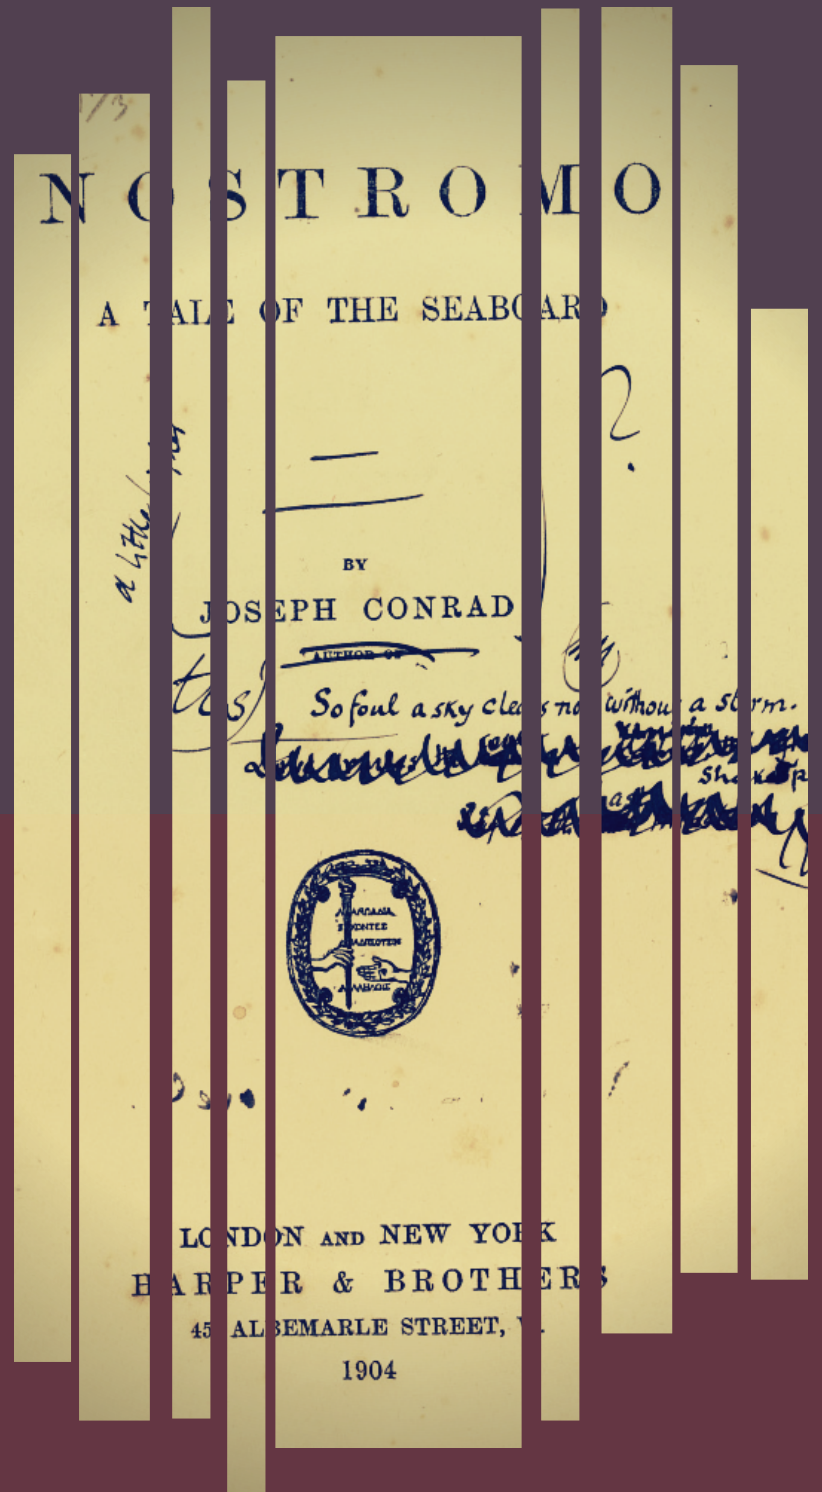 NOSTROMO
A TALE OF THE SEABOARD
?
a little
BY
JOSEPH CONRAD
AUTHOR OF
So foul a sky clears not without a storm.
LONDON AND NEW YORK
HARPER & BROTHERS
45 ALBEMARLE STREET, W.
1904